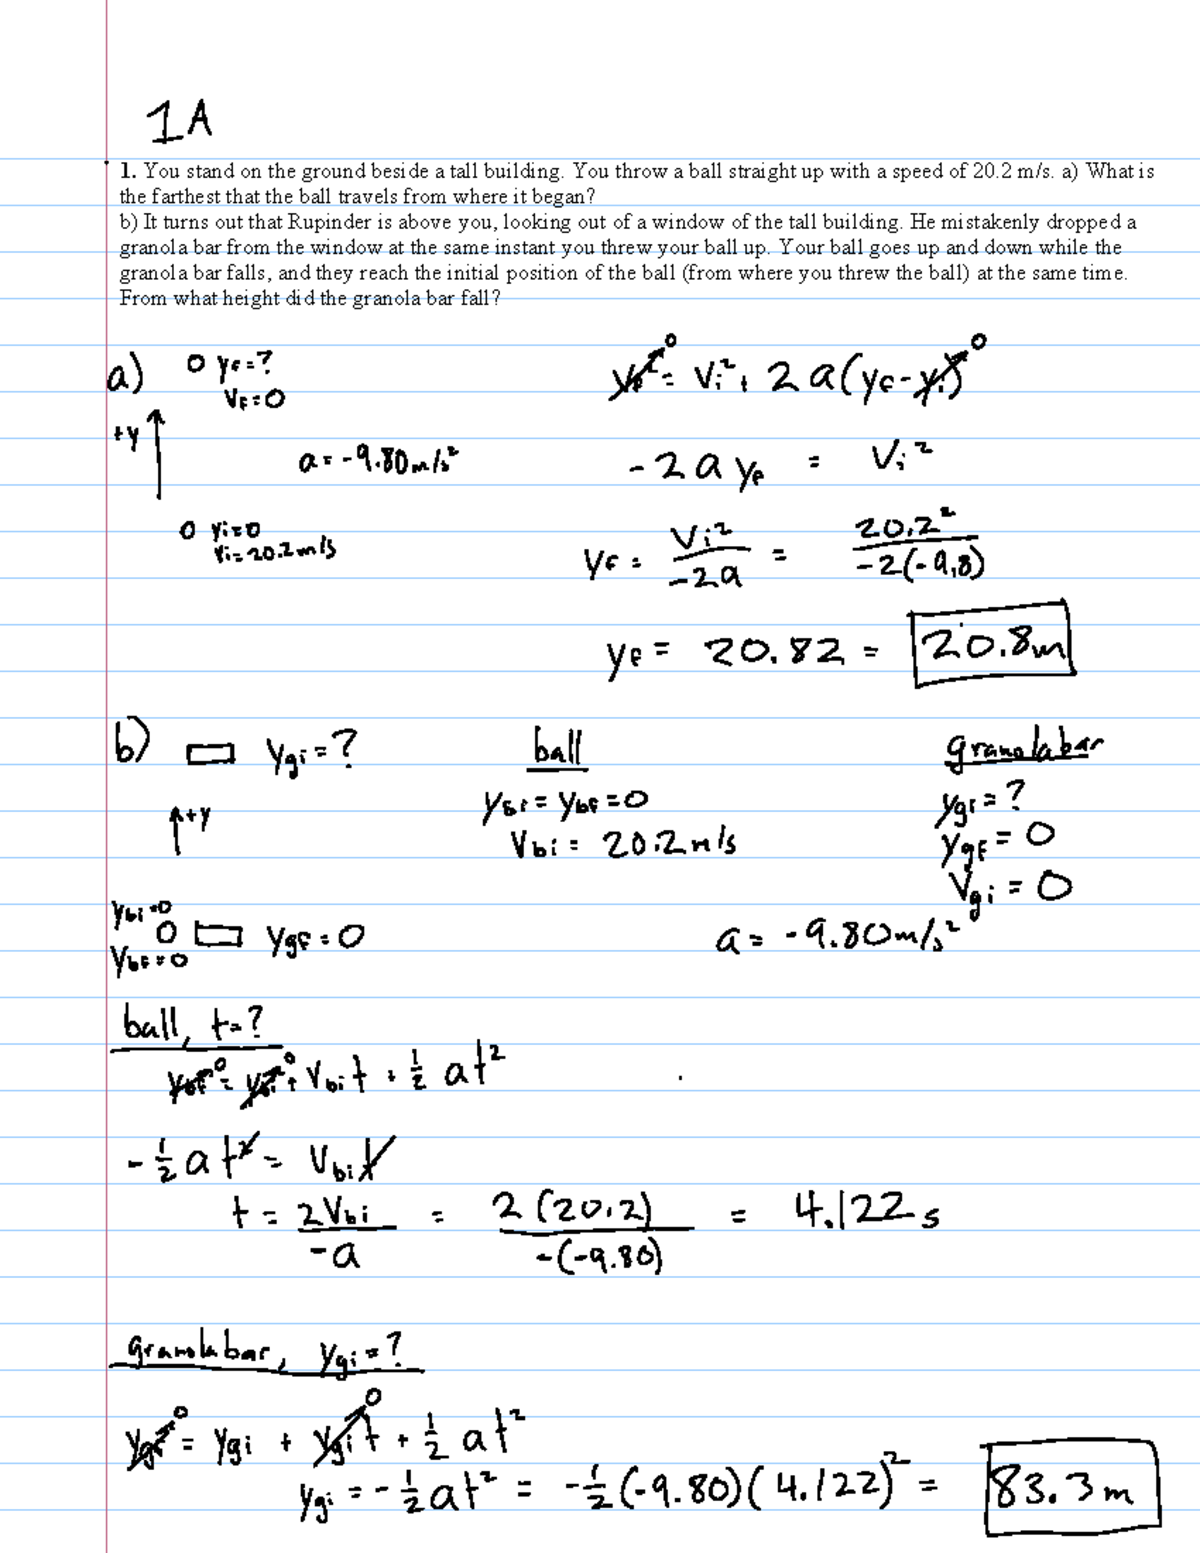 1A
1. You stand on the ground beside a tall building. You throw a ball straight up with a speed of 20.2 m/s. a) What is
the farthest that the ball travels from where it began?
b) It turns out that Rupinder is above you, looking out of a window of the tall building. He mistakenly dropped a
granola bar from the window at the same instant you threw your ball up. Your ball goes up and down while the
granola bar falls, and they reach the initial position of the ball (from where you threw the ball) at the same time.
From what height did the granola bar fall?
a) O yf = ? vf² 0 = vi² + 2a(yf - yi) 0
VF = 0
+y
a = -9.80 m/s² -2ayf = vi²
O yi = 0
vi = 20.2 m/s
yf = vi²/-2a = 20.2²/-2(-9.8)
yf = 20.82 = 20.8m
b) ygi = ? ball granola bar
ybi = ybf = 0 ygi = ?
+y Vbi = 20.2 m/s ygf = 0
Vgi = 0
ybi = 0
O ygf = 0 a = -9.80 m/s²
ybf = 0
ball, t = ?
ybf 0 = ybi 0 + Vbi t + 1/2 at²
-1/2 at² = Vbi t
t = 2Vbi/-a = 2(20.2)/-(-9.80) = 4.122 s
granola bar, ygi = ?
ygf 0 = ygi + vgi t 0 + 1/2 at²
ygi = -1/2 at² = -1/2 (-9.80)(4.122)² = 83.3 m